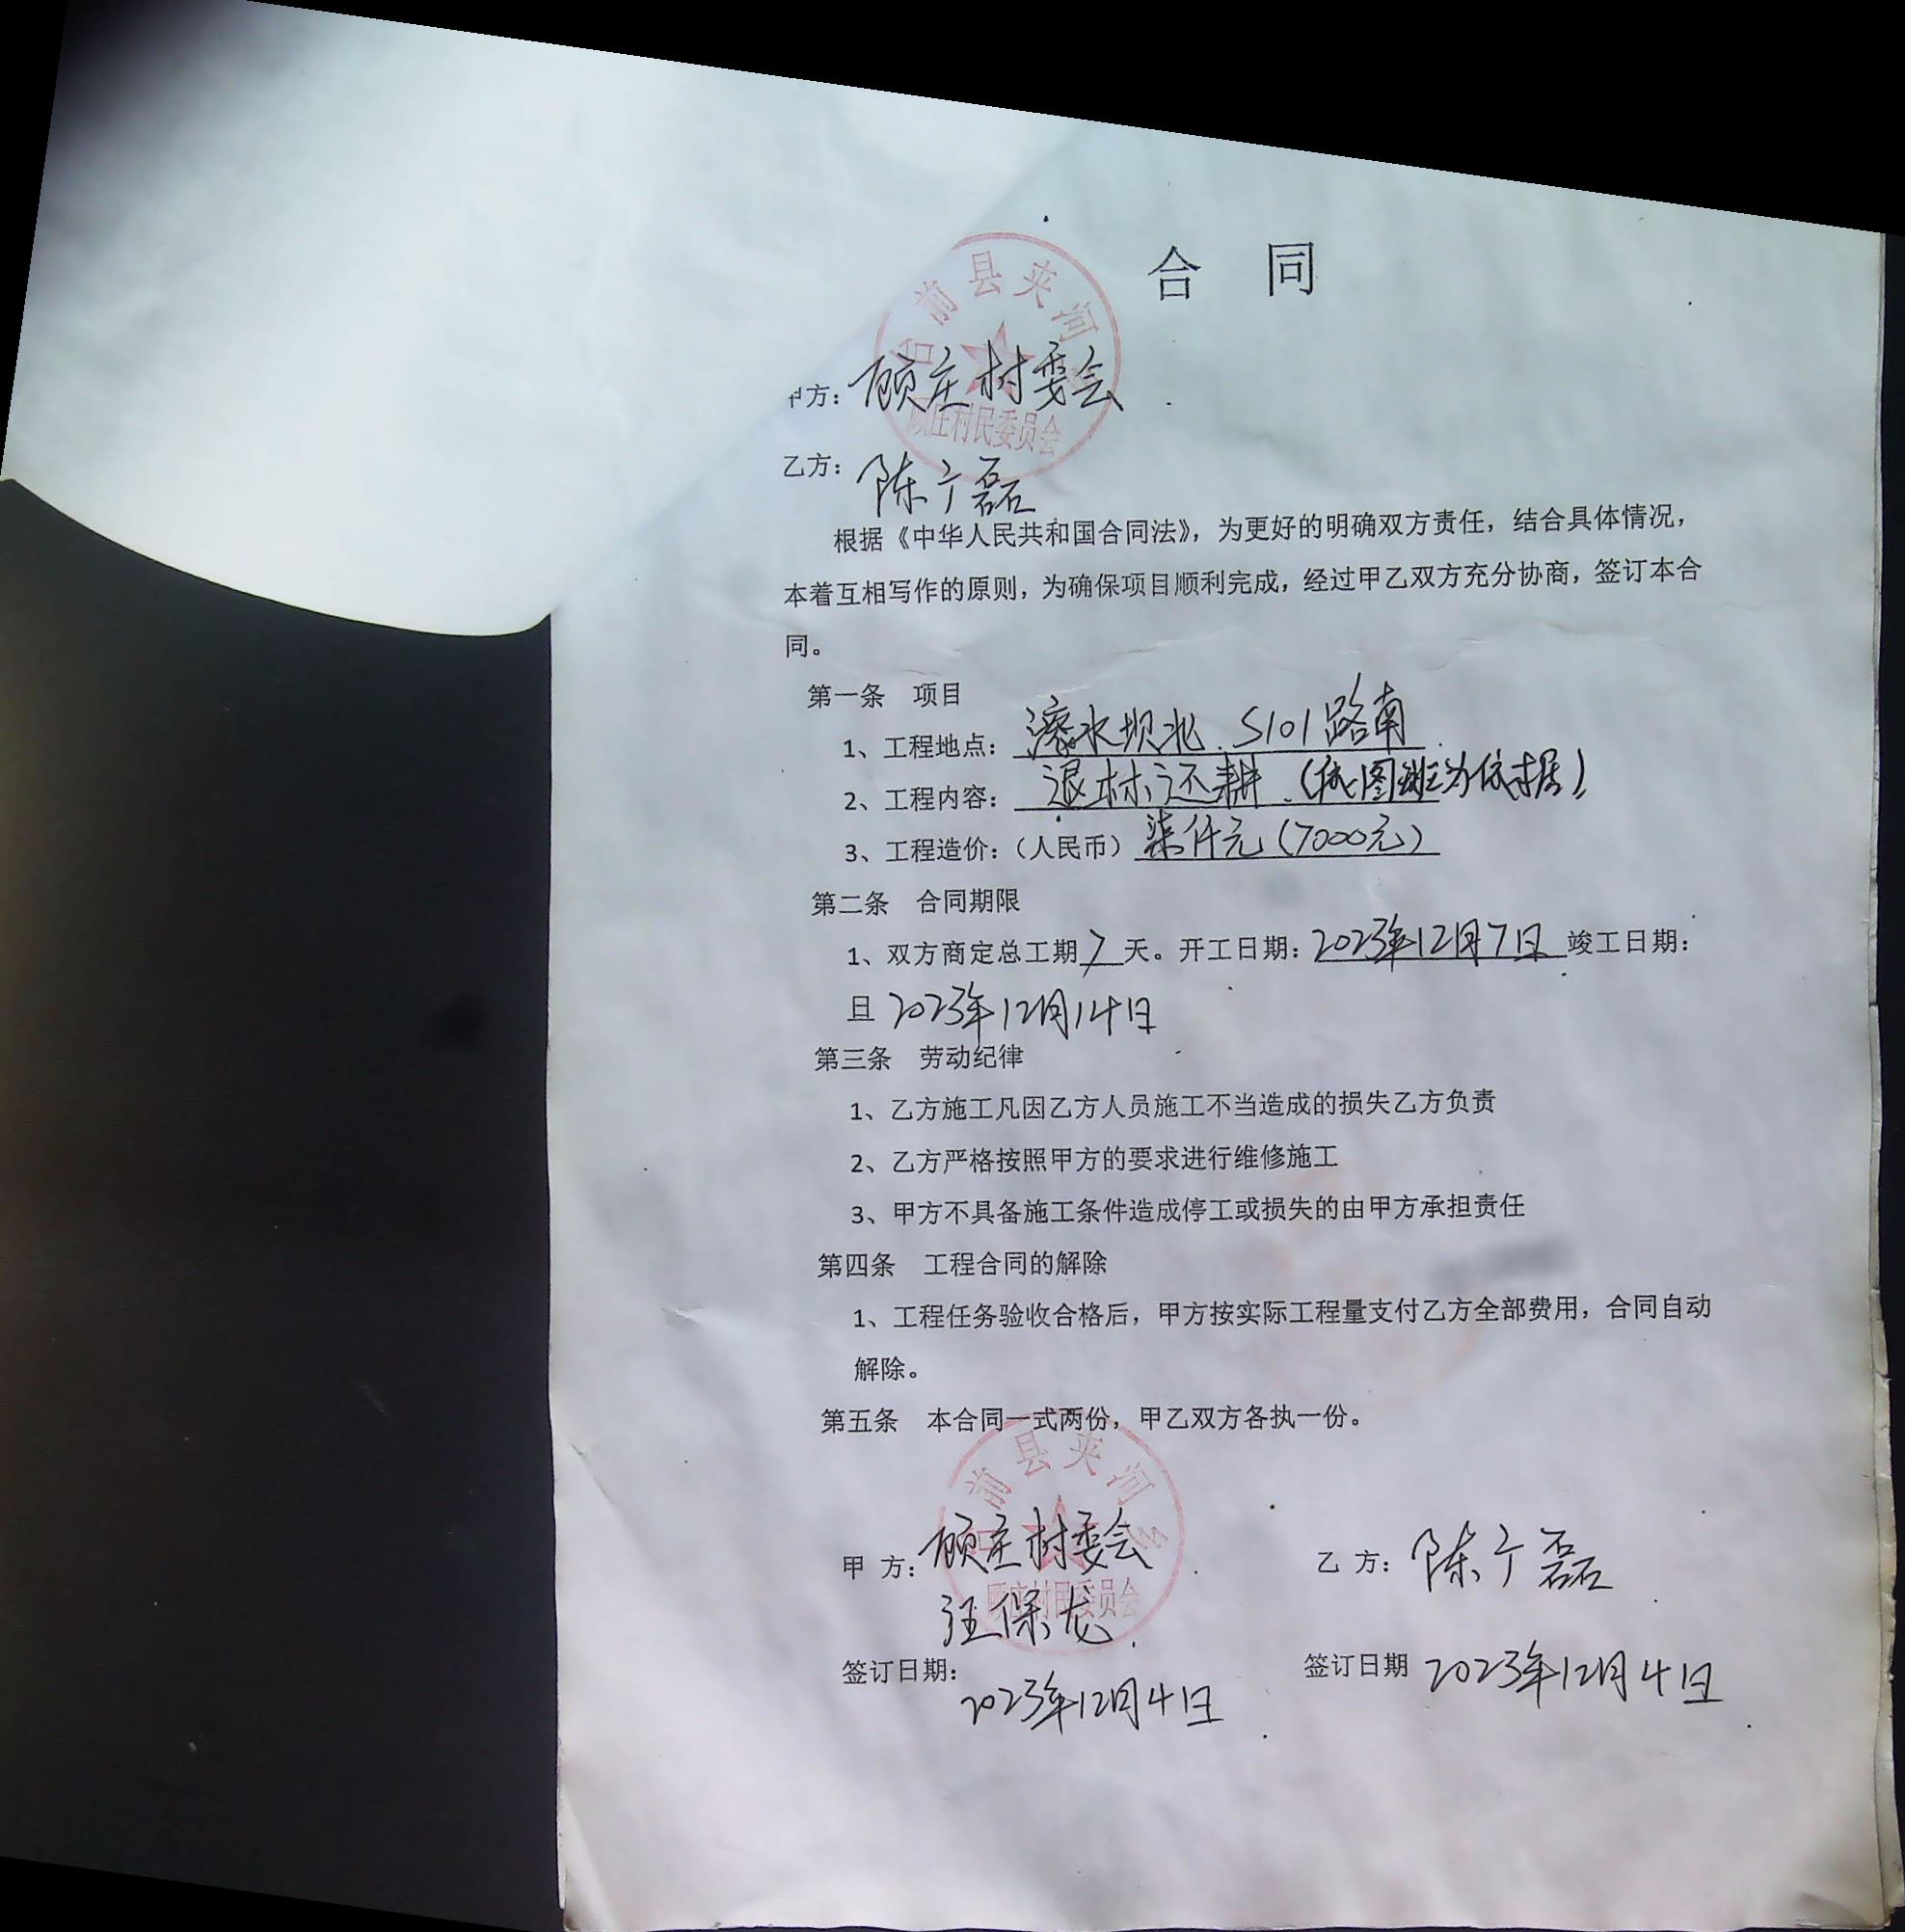 合 同
甲方：顾庄村委会
前县夹河
顾庄村民委员会
乙方：陈广磊
根据《中华人民共和国合同法》，为更好的明确双方责任，结合具体情况，
本着互相写作的原则，为确保项目顺利完成，经过甲乙双方充分协商，签订本合
同。
第一条 项目
1、工程地点：滚水坝北、S101路南
2、工程内容：退林还耕（图斑为依据）
3、工程造价：（人民币）柒仟元（7000元）
第二条 合同期限
1、双方商定总工期7天。开工日期：2023年12月7日 竣工日期：
2023年12月14日
第三条 劳动纪律
1、乙方施工凡因乙方人员施工不当造成的损失乙方负责
2、乙方严格按照甲方的要求进行维修施工
3、甲方不具备施工条件造成停工或损失的由甲方承担责任
第四条 工程合同的解除
1、工程任务验收合格后，甲方按实际工程量支付乙方全部费用，合同自动
解除。
第五条 本合同一式两份，甲乙双方各执一份。
前县夹河乡
甲 方：顾庄村委会 乙 方：陈广磊
顾庄村民委员会
汪保龙
签订日期：2023年12月4日 签订日期 2023年12月4日